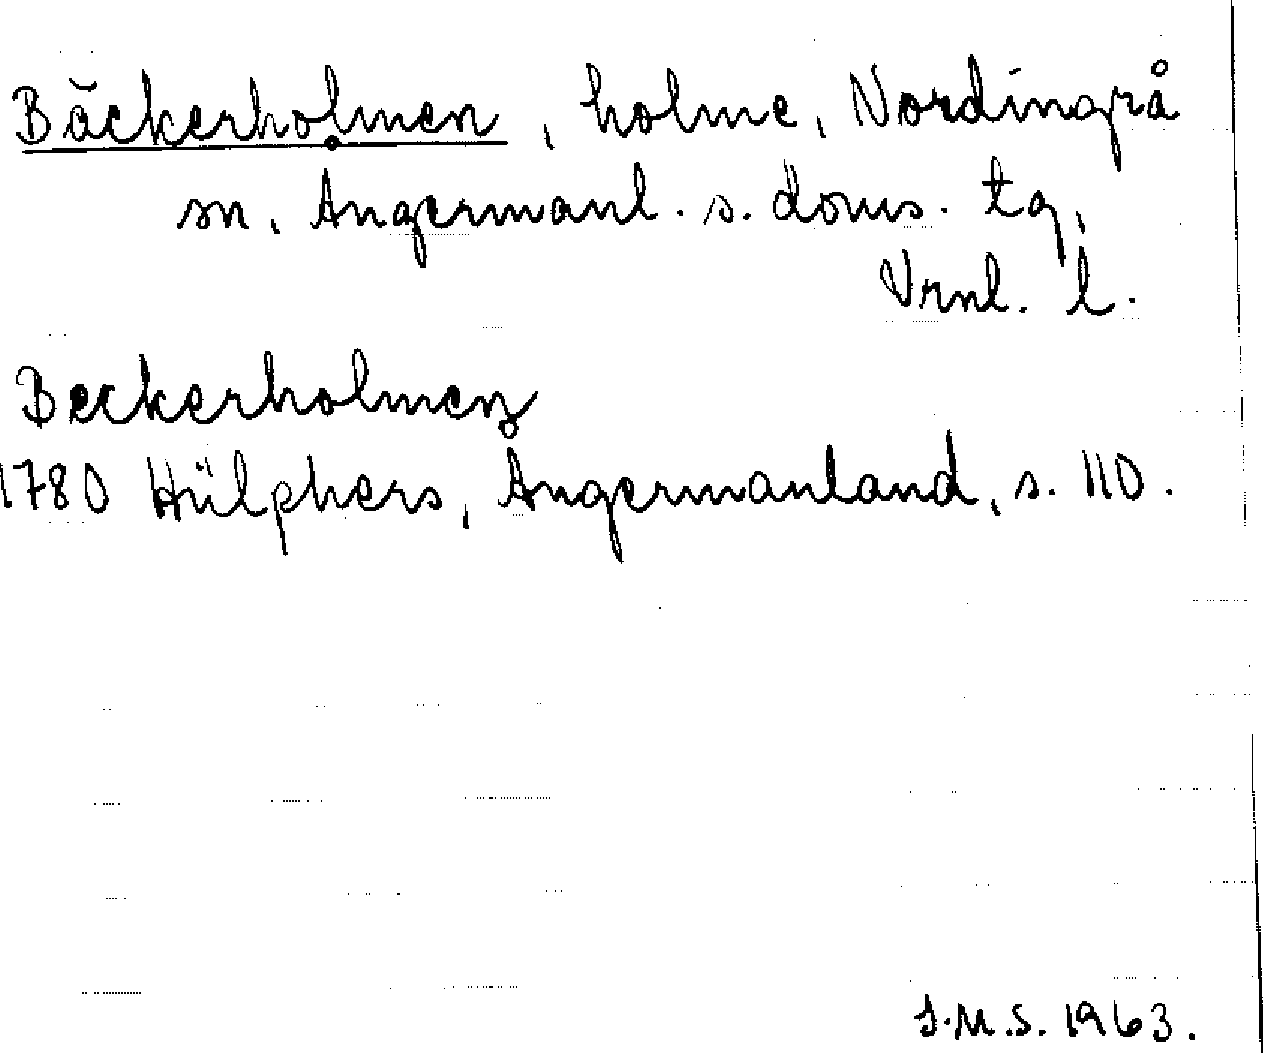 Bäckerholmen, holme, Nordingrå
sn, Ångermanl. s. doms. tg,
Vrnl. l.
Beckerholmen
1780 Hülphers, Ångermanland, s. 110.
I.M.S. 1963.